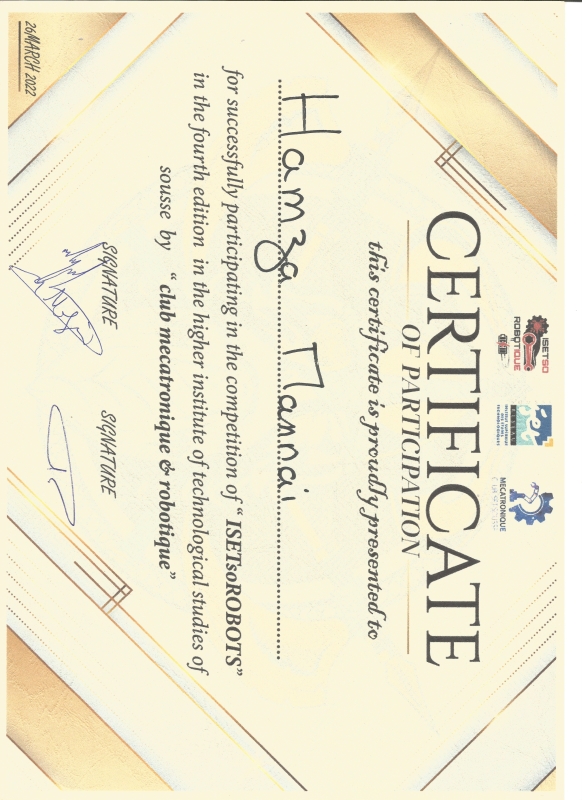 ISETSO
ROBOTIQUE
INSTITUT SUPERIEUR
DES ETUDES
TECHNOLOGIQUES
MECATRONIQUE
CERTIFICATE
OF PARTICIPATION
this certificate is proudly presented to
Hamza Mannai
for successfully participating in the competition of “ ISETsoROBOTS”
in the fourth edition in the higher institute of technological studies of
sousse by “ club mecatronique & robotique”
SIGNATURE SIGNATURE
26MARCH 2022